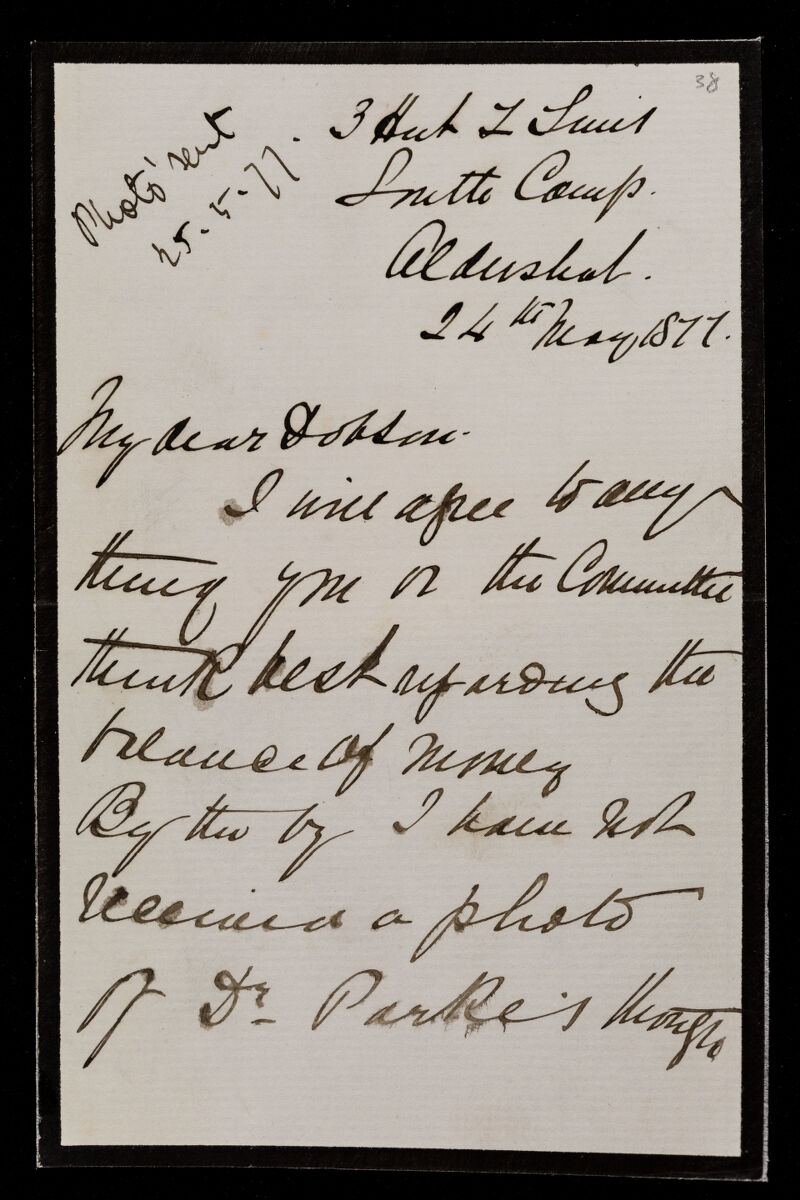 38
Photo' sent
25-5-77.
3 Hut L Lines
South Camp.
Aldershot.
24th May 1877.
My dear Dobson.
I will agree to any
thing you or the Committee
think best regarding the
balance of money
By the by I have not
received a photo
of Dr Parke's though